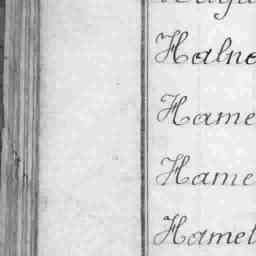 Halne
Hame
Hame
Hamel